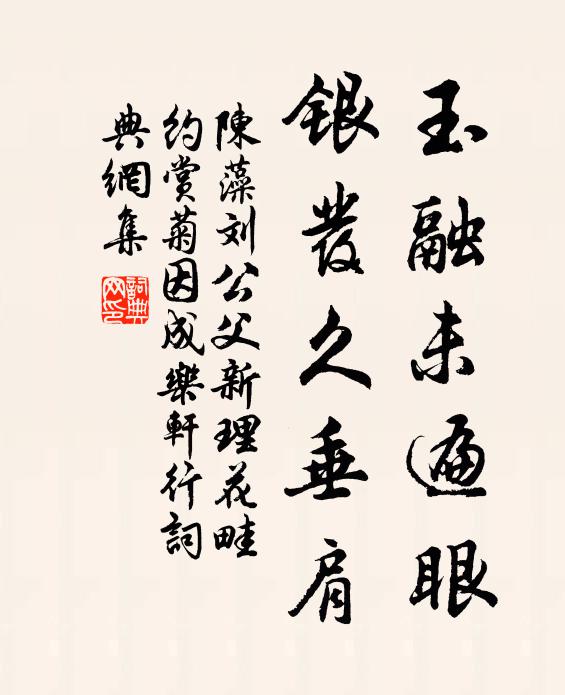 玉融未遍眼
銀發久垂肩
陳藻刘公父新理花畦
約賞菊因成樂軒行詞
典網集
詞典网印